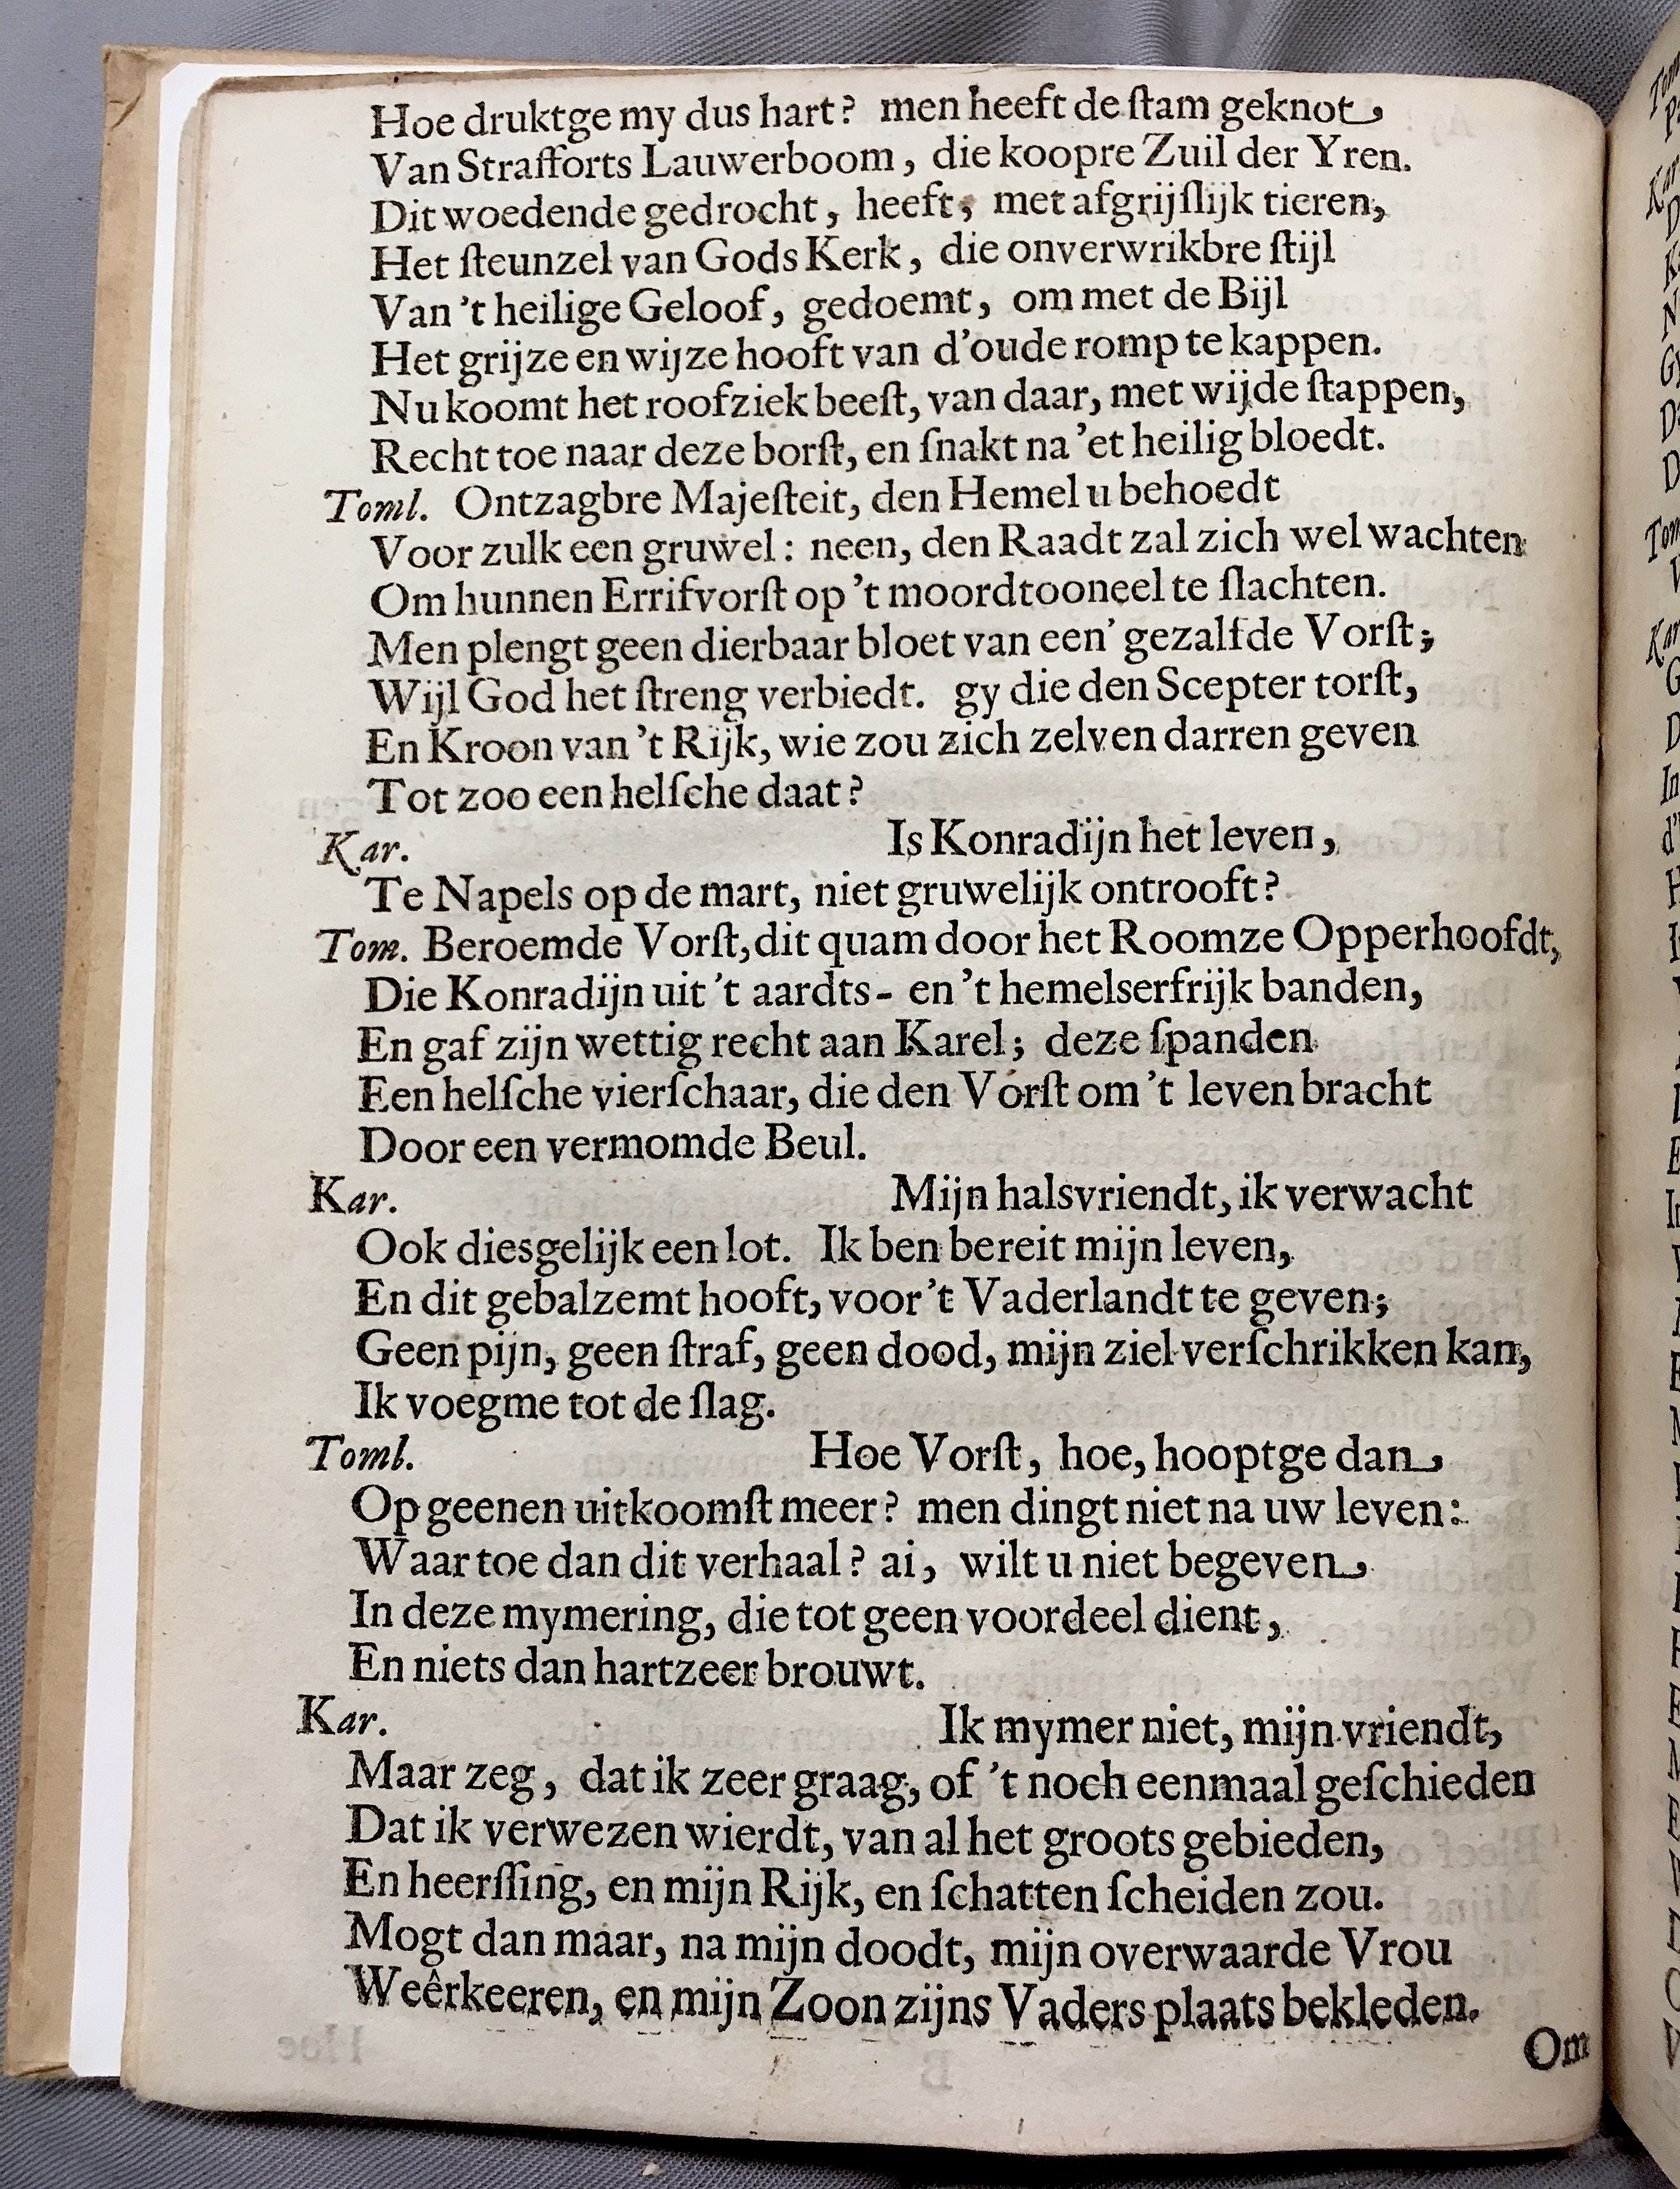 Hoe druktge my dus hart? men heeft de ſtam geknot
Van Strafforts Lauwerboom, die koopre Zuil der Yren.
Dit woedende gedrocht, heeft, met afgrijſlijk tieren,
Het ſteunzel van Gods Kerk, die onverwrikbre ſtijl
Van 't heilige Geloof, gedoemt, om met de Bijl
Het grijze en wijze hooft van d'oude romp te kappen.
Nu koomt het roofziek beeſt, van daar, met wijde ſtappen,
Recht toe naar deze borſt, en ſnakt na 'et heilig bloedt.
Toml. Ontzagbre Majeſteit, den Hemel u behoedt
Voor zulk een gruwel: neen, den Raadt zal zich wel wachten
Om hunnen Errifvorſt op 't moordtooneel te ſlachten.
Men plengt geen dierbaar bloet van een' gezalfde Vorſt;
Wijl God het ſtreng verbiedt. gy die den Scepter torſt,
En Kroon van 't Rijk, wie zou zich zelven darren geven
Tot zoo een helſche daat?
Kar. Is Konradijn het leven,
Te Napels op de mart, niet gruwelijk ontrooft?
Tom. Beroemde Vorſt, dit quam door het Roomze Opperhoofdt,
Die Konradijn uit 't aardts- en 't hemelserfrijk banden,
En gaf zijn wettig recht aan Karel; deze ſpanden
Een helſche vierſchaar, die den Vorſt om 't leven bracht
Door een vermomde Beul.
Kar. Mijn halsvriendt, ik verwacht
Ook diesgelijk een lot. Ik ben bereit mijn leven,
En dit gebalzemt hooft, voor 't Vaderlandt te geven;
Geen pijn, geen ſtraf, geen dood, mijn ziel verſchrikken kan,
Ik voegme tot de ſlag.
Toml. Hoe Vorſt, hoe, hooptge dan
Op geenen uitkoomſt meer? men dingt niet na uw leven:
Waar toe dan dit verhaal? ai, wilt u niet begeven
In deze mymering, die tot geen voordeel dient,
En niets dan hartzeer brouwt.
Kar. Ik mymer niet, mijn vriendt,
Maar zeg, dat ik zeer graag, of 't noch eenmaal geſchieden
Dat ik verwezen wierdt, van al het groots gebieden,
En heerſſing, en mijn Rijk, en ſchatten ſcheiden zou.
Mogt dan maar, na mijn doodt, mijn overwaarde Vrou
Weêrkeeren, en mijn Zoon zijns Vaders plaats bekleden.
Om